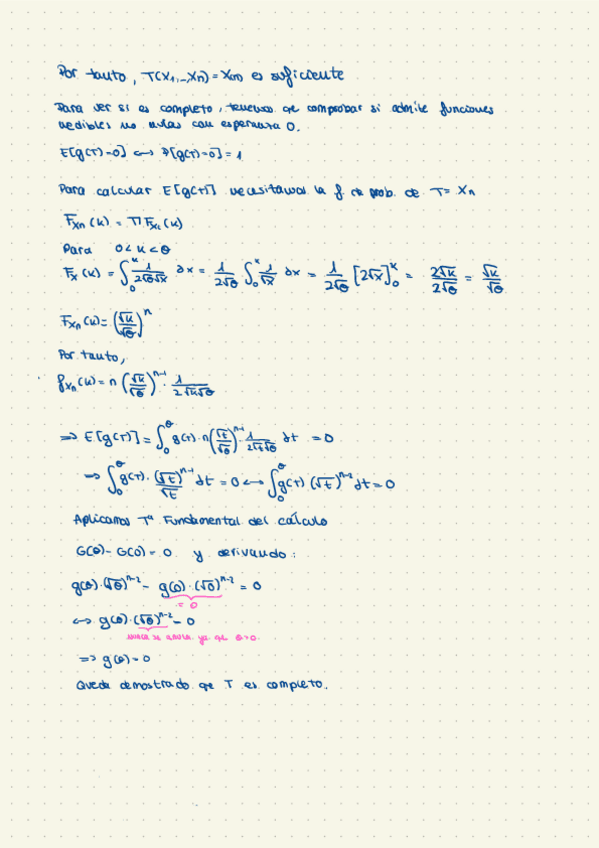 Por tanto, T(X1,...,Xn) = X(n) es suficiente
Para ver si es completo, tenemos qe comprobar si admite funciones
medibles no nulas con esperanza 0.
E[g(T)=0] ↔ P[g(T)=0] = 1
Para calcular E[g(T)] necesitamos la f. de prob. de T = Xn
F_Xn(x) = Π F_Xi(x)
Para 0 < x < θ
F_X(x) = ∫_0^x 1/(2√θ√x) dx = 1/(2√θ) ∫_0^x 1/√x dx = 1/(2√θ) [2√x]_0^x = 2√x/(2√θ) = √x/√θ
F_Xn(x) = (√x/√θ)^n
Por tanto,
f_Xn(x) = n (√x/√θ)^(n-1) · 1/(2√x√θ)
⇒ E[g(T)] = ∫_0^θ g(T) · n (√t/√θ)^(n-1) · 1/(2√t√θ) dt = 0
⇒ ∫_0^θ g(T) · (√t)^(n-1)/√t dt = 0 ↔ ∫_0^θ g(T) (√t)^(n-2) dt = 0
Aplicamos Tª Fundamental del cálculo
G(θ) - G(0) = 0 y derivando:
g(θ) · (√θ)^(n-2) - g(0) · (√0)^(n-2) = 0
= 0
↔ g(θ) · (√θ)^(n-2) = 0
nunca se anula ya qe θ>0.
⇒ g(θ) = 0
Queda demostrado qe T es completo.